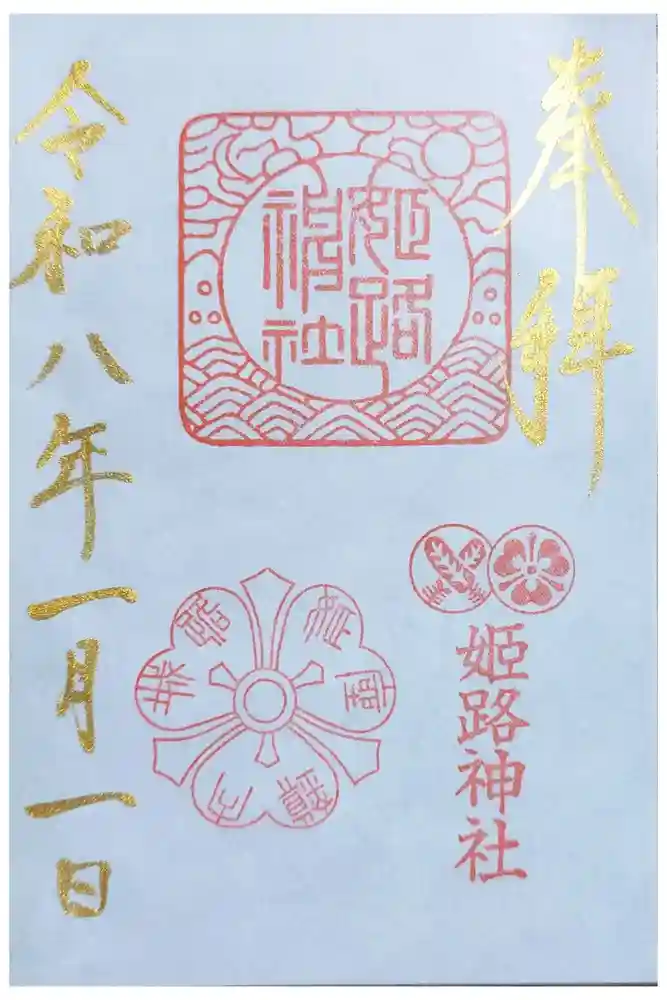 奉拝
姫路
神社
姫路神社
令和八年一月一日